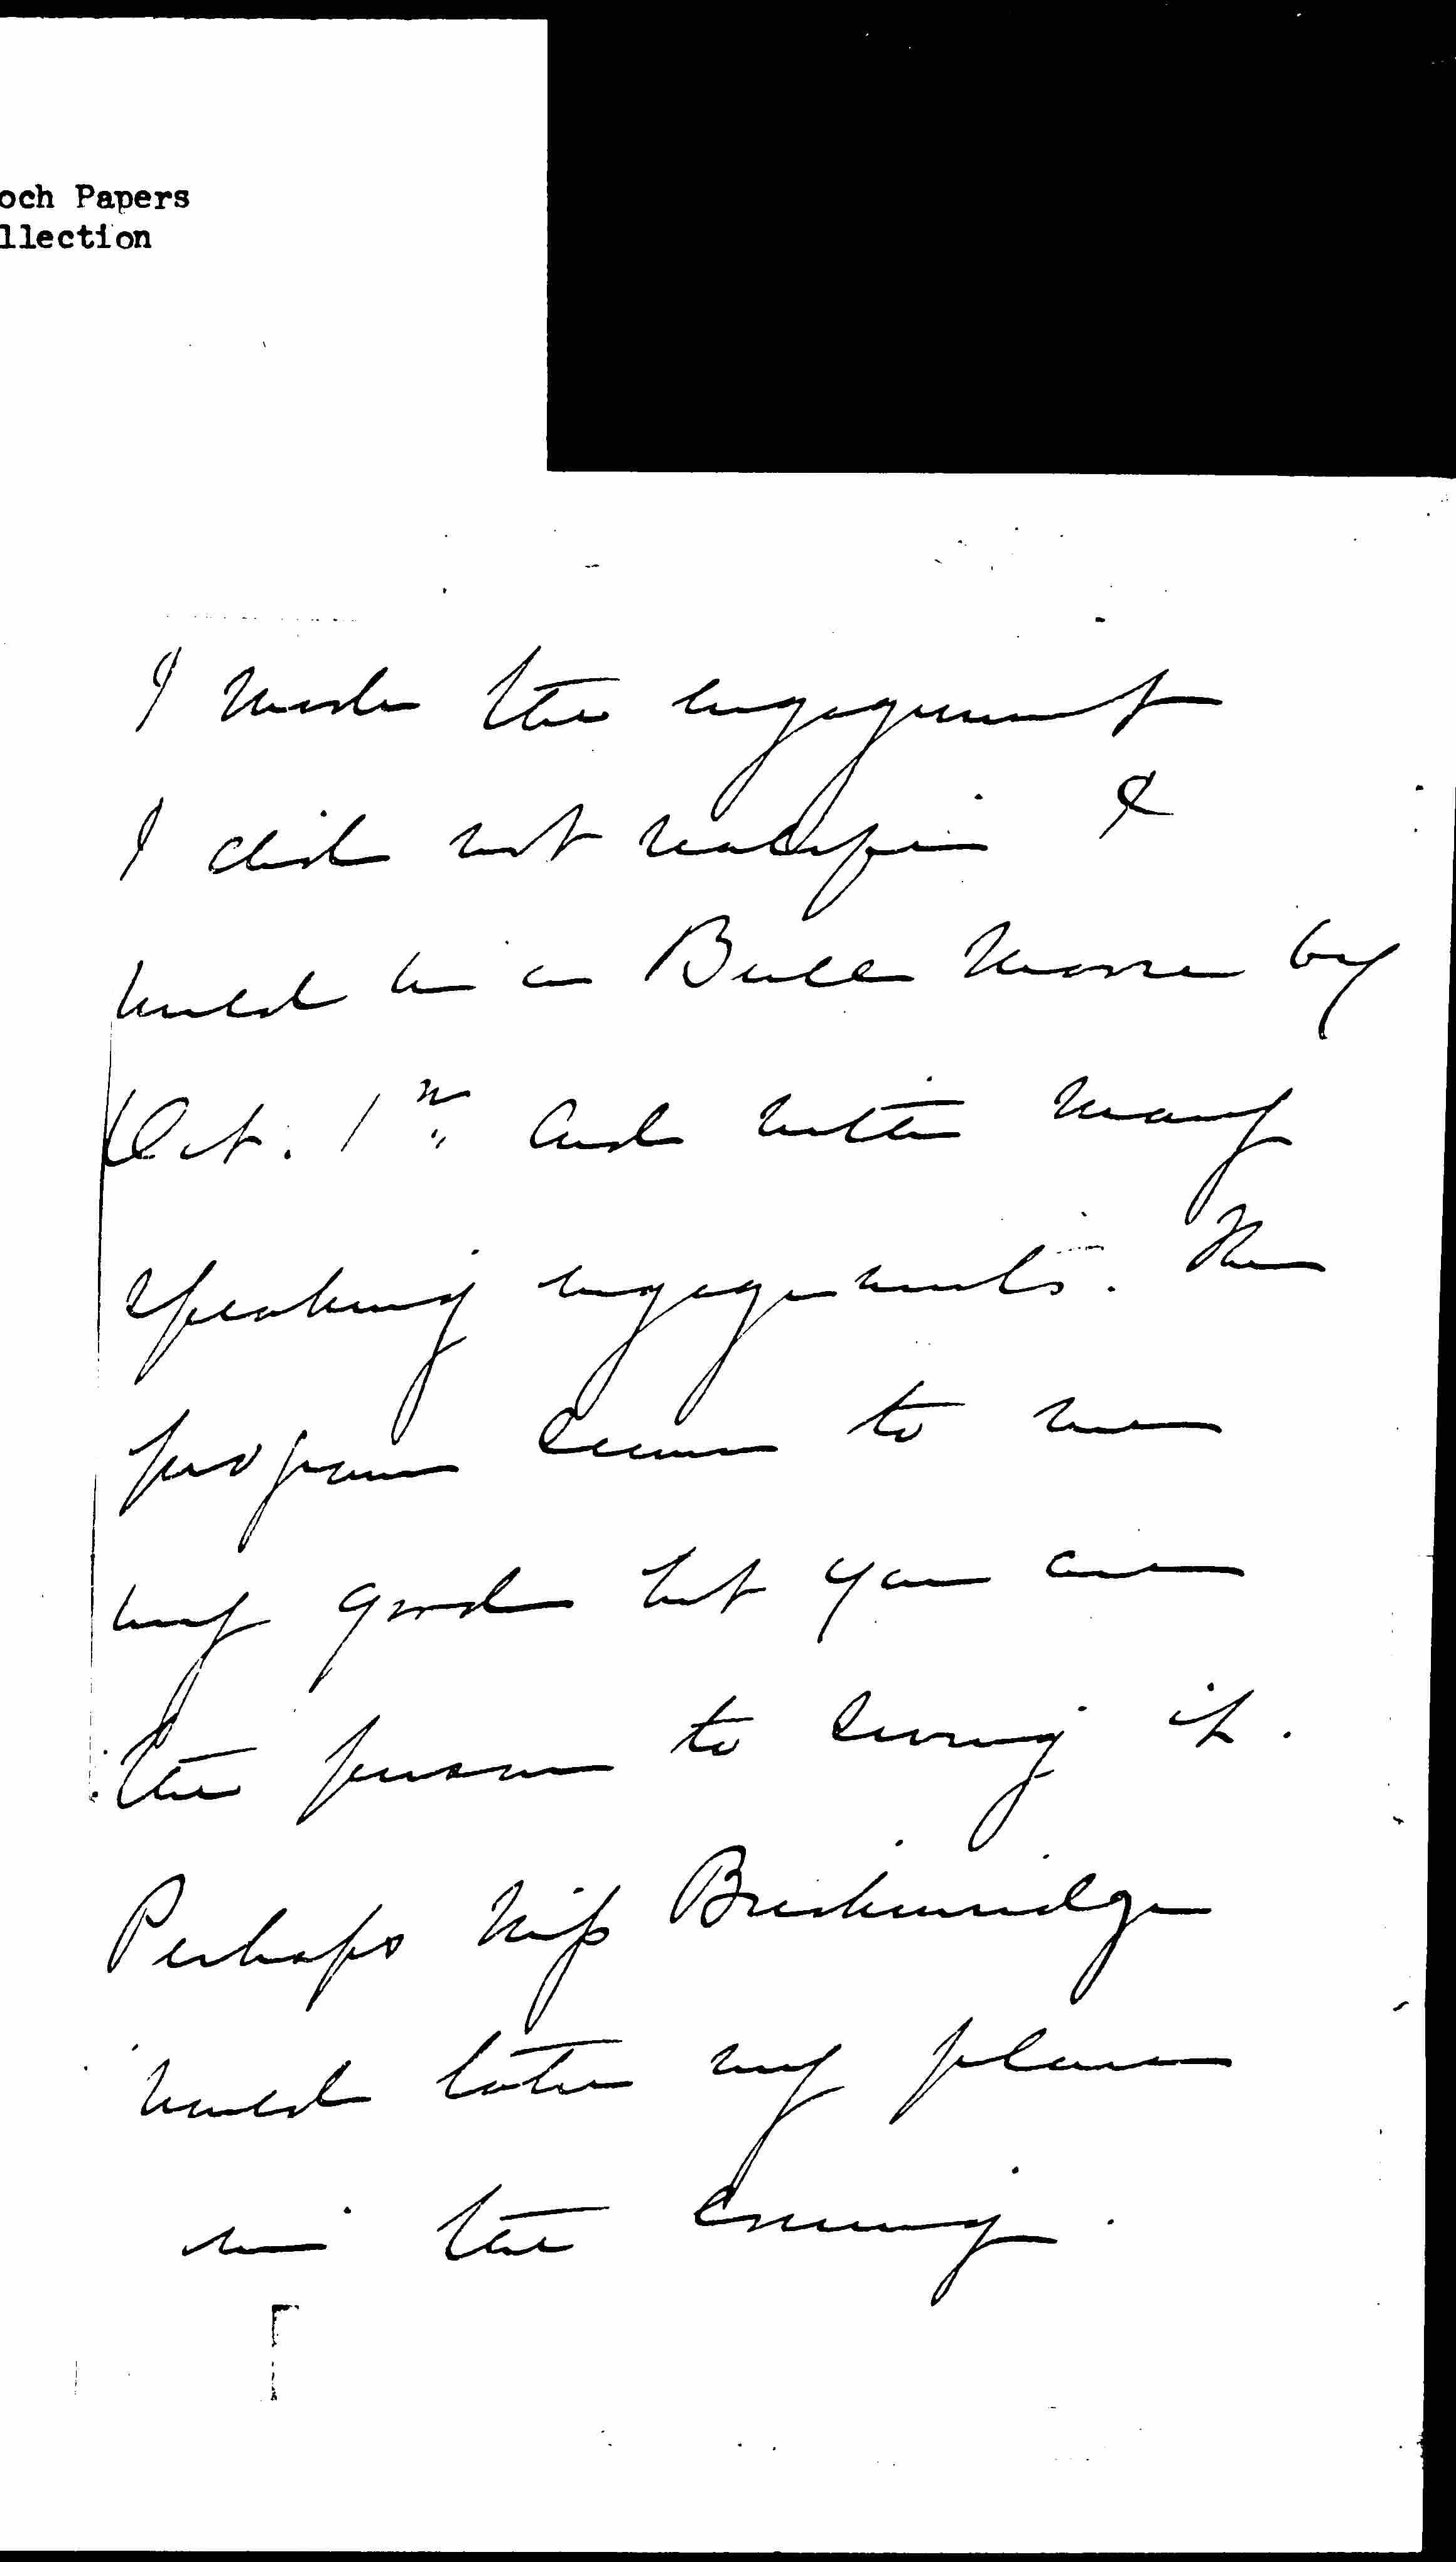 och Papers
llection
I made the engagement
I did not realize I
would be a Bull Moose by
Oct. 1st and with many
speaking engagements. The
program seems to me
very good but you are
the person to swing it.
Perhaps Miss Breckinridge
would take my place
in the evening.